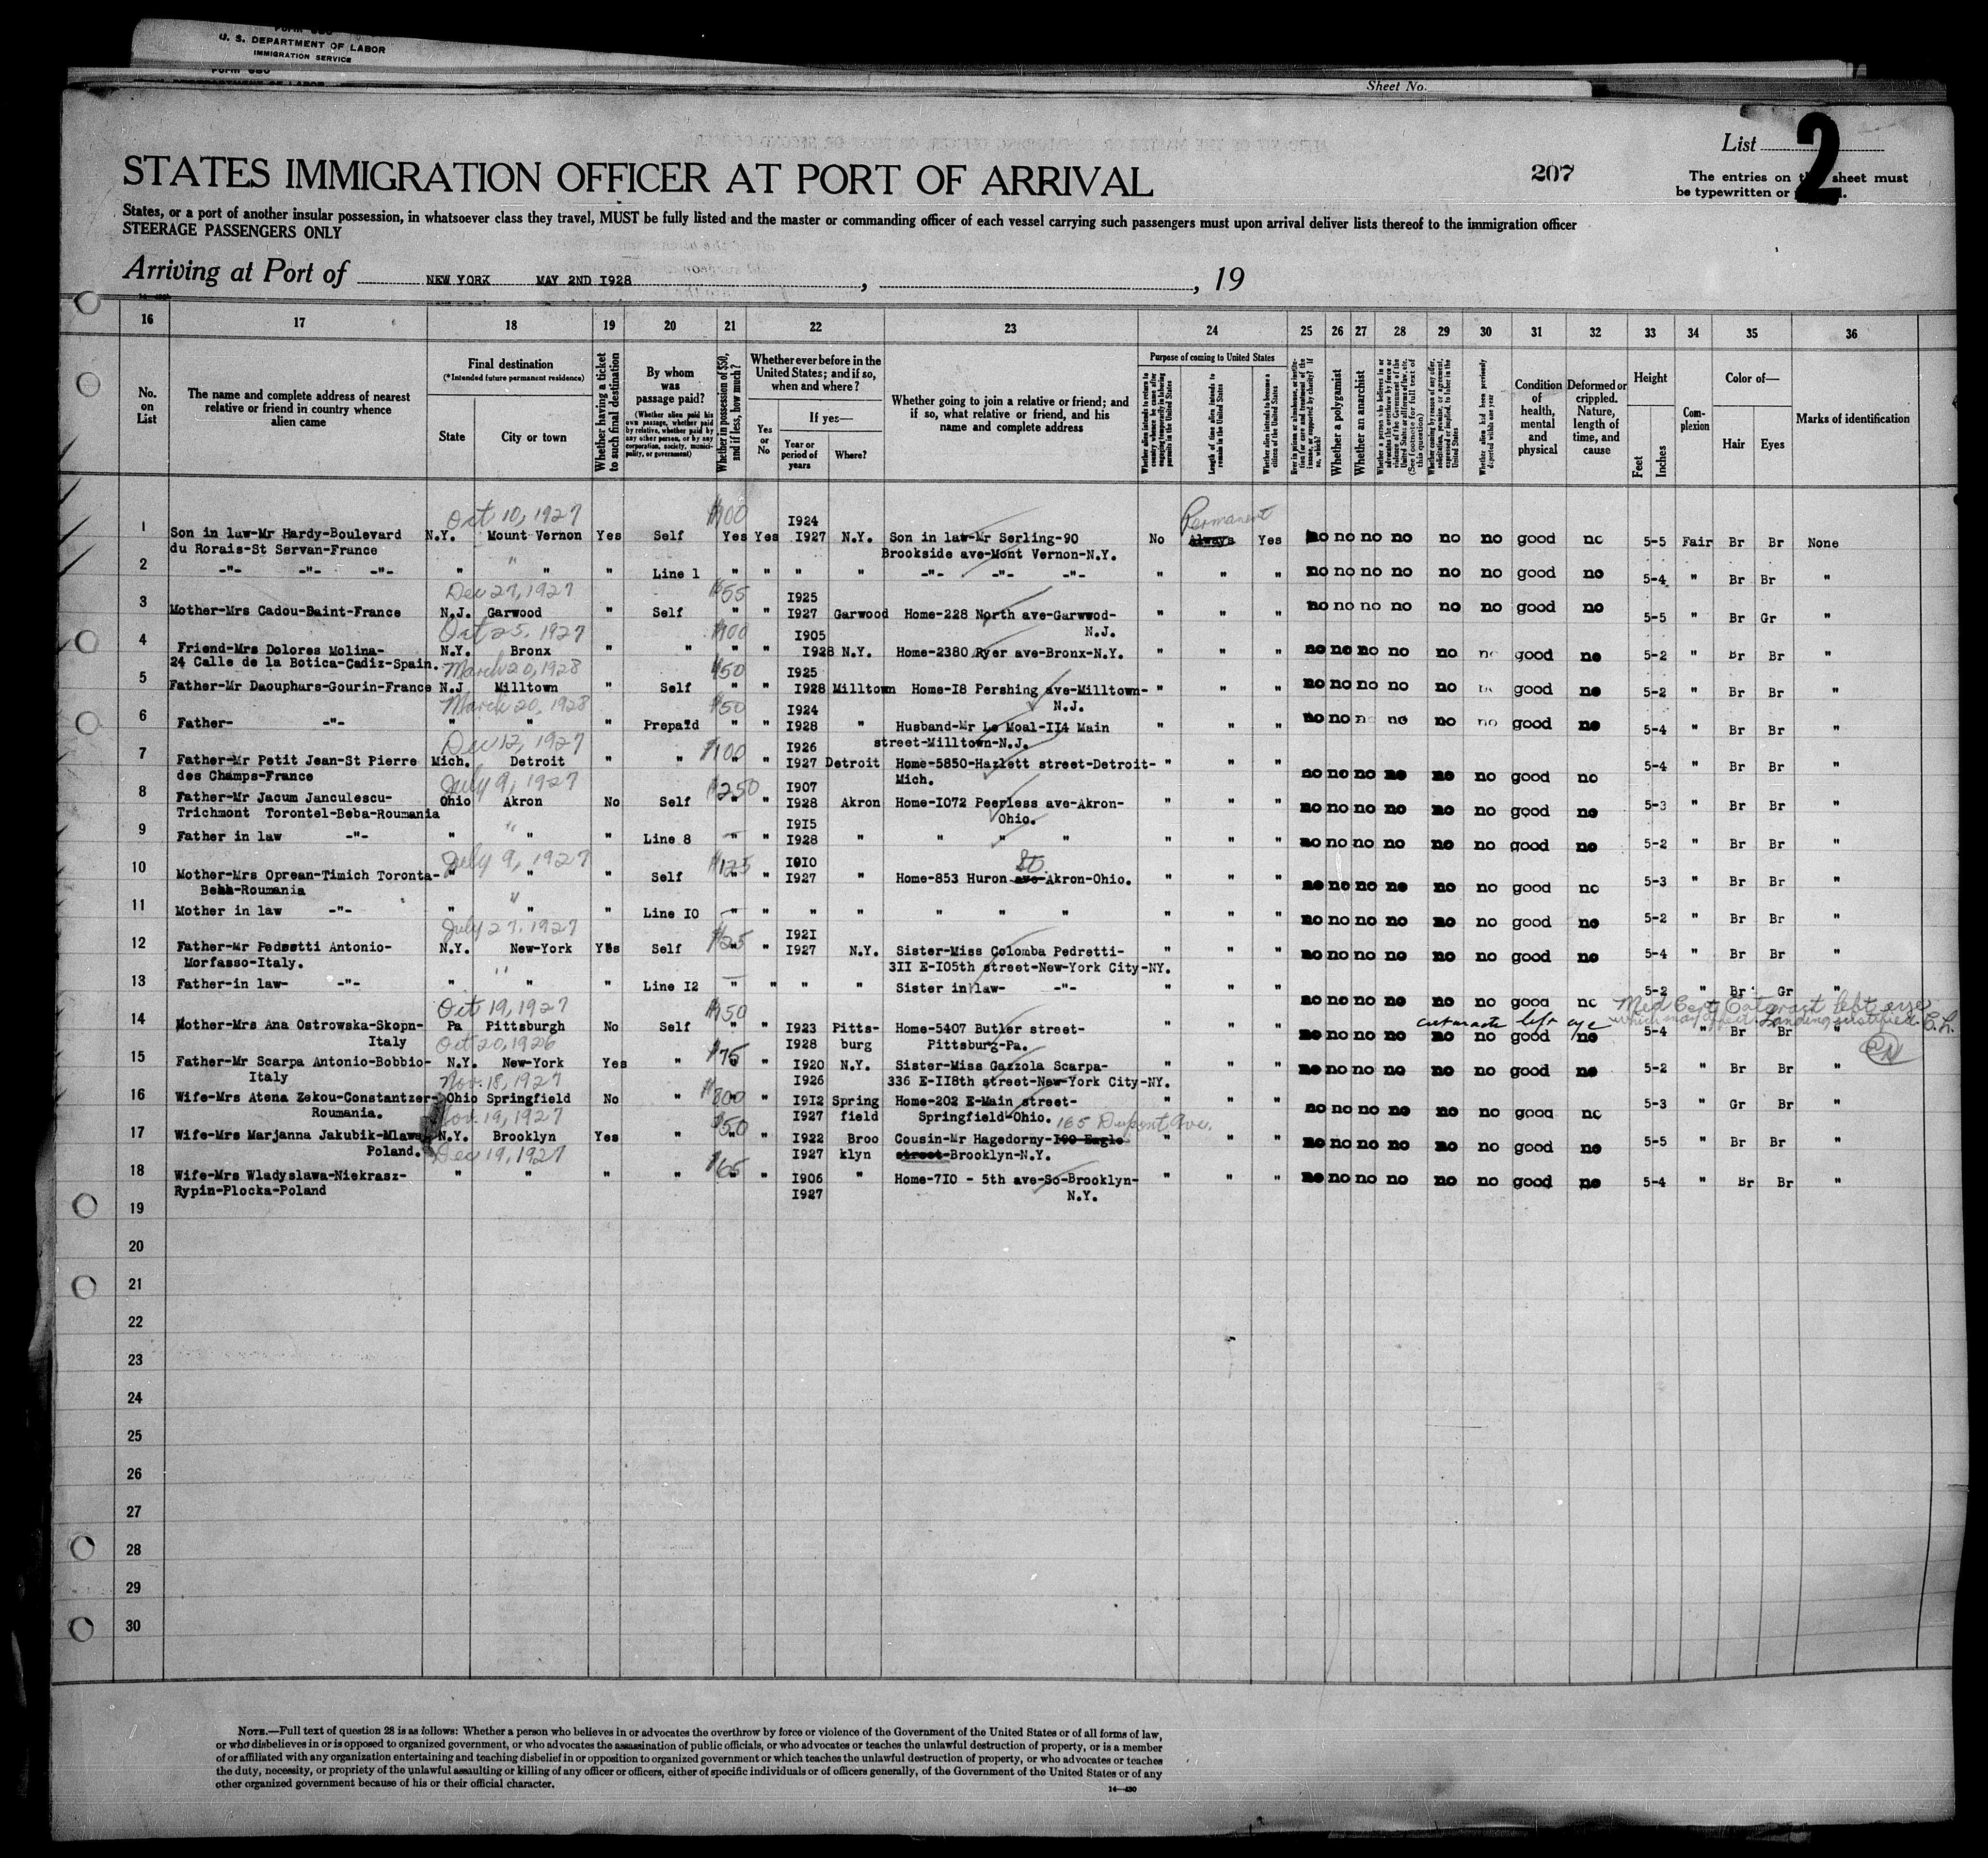 Form 680
U. S. DEPARTMENT OF LABOR
IMMIGRATION SERVICE
Sheet No.
List 2
STATES IMMIGRATION OFFICER AT PORT OF ARRIVAL
207
The entries on sheet must
be typewritten or
States, or a port of another insular possession, in whatsoever class they travel, MUST be fully listed and the master or commanding officer of each vessel carrying such passengers must upon arrival deliver lists thereof to the immigration officer
STEERAGE PASSENGERS ONLY
Arriving at Port of NEW YORK MAY 2ND I928 , , 19
16 17 18 19 20 21 22 23 24 25 26 27 28 29 30 31 32 33 34 35 36
No. on List
The name and complete address of nearest relative or friend in country whence alien came
Final destination
(*Intended future permanent residence)
State
City or town
Whether having a ticket to such final destination
By whom was passage paid?
(Whether alien paid his own passage, whether paid by relative, whether paid by any other person, or by any corporation, society, municipality, or government)
Whether in possession of $50, and if less, how much?
Whether ever before in the United States; and if so, when and where?
Yes or No
If yes—
Year or period of years
Where?
Whether going to join a relative or friend; and if so, what relative or friend, and his name and complete address
Purpose of coming to United States
Length of time alien intends to remain in the United States
Whether alien intends to become a citizen of the United States
Whether a polygamist
Whether an anarchist
Condition of health, mental and physical
Deformed or crippled. Nature, length of time, and cause
Height
Feet
Inches
Complexion
Color of—
Hair
Eyes
Marks of identification
Oct 10, 1927 $100 I924 Permanent
1 Son in law-Mr Hardy-Boulevard N.Y. Mount Vernon Yes Self Yes Yes I927 N.Y. Son in law-Mr Serling-90 No Always Yes no no no no no no good no 5-5 Fair Br Br None
du Rorais-St Servan-France Brookside ave-Mont Vernon-N.Y.
2 -"- -"- -"- " " " Line 1 " " " " -"- -"- -"- " " " no no no no no no good no 5-4 " Br Br "
Dec 27, 1927 $55 I925
3 Mother-Mrs Cadou-Baint-France N.J. Garwood " Self " " I927 Garwood Home-228 North ave-Garwwod- " " " no no no no no no good no 5-5 " Br Gr "
N.J.
Oct 25, 1927 $100 I905
4 Friend-Mrs Dolores Molina- N.Y. Bronx " " " " I928 N.Y. Home-2380 Ryer ave-Bronx-N.Y. " " " no no no no no no good no 5-2 " Br Br "
24 Calle de la Botica-Cadiz-Spain.
March 20, 1928 $50 I925
5 Father-Mr Daouphars-Gourin-France N.J Milltown " Self " " I928 Milltown Home-I8 Pershing ave-Milltown- " " " no no no no no good no 5-2 " Br Br "
N.J.
March 20, 1928 $50 I924
6 Father- -"- " " " Prepaid " " I928 " Husband-Mr Le Moal-II4 Main " " " no no no no no no good no 5-4 " Br Br "
street-Milltown-N.J.
Dec 12, 1927 $100 I926
7 Father-Mr Petit Jean-St Pierre Mich. Detroit " " " " I927 Detroit Home-5850-Hazlett street-Detroit- " " " no no no no no no good no 5-4 " Br Br "
des Champs-France Mich.
July 9, 1927 $250 I907
8 Father-Mr Jacum Janculescu- Ohio Akron No Self " " I928 Akron Home-I072 Peerless ave-Akron- " " " no no no no no no good no 5-3 " Br Br "
Trichmont Torontel-Beba-Roumania Ohio.
" I9I5
9 Father in law -"- " " " Line 8 " " I928 " " " " " " " no no no no no no good no 5-2 " Br Br "
July 9, 1927 $125 I9I0 St.
10 Mother-Mrs Oprean-Timich Toronta- " " " Self " " I927 " Home-853 Huron ave-Akron-Ohio. " " " no no no no no no good no 5-3 " Br Br "
Beba-Roumania
11 Mother in law -"- " " " Line I0 " " " " " " " " " " no no no no no no good no 5-2 " Br Br "
July 27, 1927 $25 I92I
12 Father-Mr Pedretti Antonio- N.Y. New-York Yes Self " " I927 N.Y. Sister-Miss Colomba Pedretti- " " " no no no no no no good no 5-4 " Br Br "
Morfasso-Italy. 3II E-I05th street-New-York City-NY.
13 Father-in law- -"- " " " Line I2 " " " " Sister in law- -"- " " " no no no no no no good no 5-2 " Br Gr "
Oct 19, 1927 $150 Med Cert Cataract left eye
which may affect Landing C. L.
14 Mother-Mrs Ana Ostrowska-Skopn- Pa Pittsburgh No Self " " I923 Pitts- Home-5407 Butler street- " " " cataract left eye no no no no no no good no 5-4 " Br Br "
Italy I928 burg Pittsburg-Pa.
Oct 20, 1926 $75
15 Father-Mr Scarpa Antonio-Bobbio- N.Y. New-York Yes " " " I920 N.Y. Sister-Miss Gazzola Scarpa- " " " no no no no no no good no 5-2 " Br Br "
Italy I926 336 E-II8th street-New-York City-NY.
Nov. 18, 1927 $300
16 Wife-Mrs Atena Zekou-Constantzer- Ohio Springfield No " " " I9I2 Spring Home-202 E-Main street- " " " no no no no no no good no 5-3 " Gr Br "
Roumania. I927 field Springfield-Ohio.
Nov. 19, 1927 $50 165 Dupont Ave.
17 Wife-Mrs Marjanna Jakubik-Mlawa N.Y. Brooklyn Yes " " " I922 Broo Cousin-Mr Hagedorny-I90 Eagle " " " no no no no no no good no 5-5 " Br Br "
Poland. I927 klyn street-Brooklyn-N.Y.
Dec 19, 1927 $65
18 Wife-Mrs Wladyslawa-Niekrasz- " " " " " " I906 " Home-7I0 - 5th ave-So-Brooklyn- " " " no no no no no no good no 5-4 " Br Br "
Rypin-Plocka-Poland I927 N.Y.
19
20
21
22
23
24
25
26
27
28
29
30
NOTE.—Full text of question 28 is as follows: Whether a person who believes in or advocates the overthrow by force or violence of the Government of the United States or of all forms of law,
or who disbelieves in or is opposed to organized government, or who advocates the assassination of public officials, or who advocates or teaches the unlawful destruction of property, or is a member
of or affiliated with any organization entertaining and teaching disbelief in or opposition to organized government or which teaches the unlawful destruction of property, or who advocates or teaches
the duty, necessity, or propriety of the unlawful assaulting or killing of any officer or officers, either of specific individuals or of officers generally, of the Government of the United States or of any
other organized government because of his or their official character.
14—430